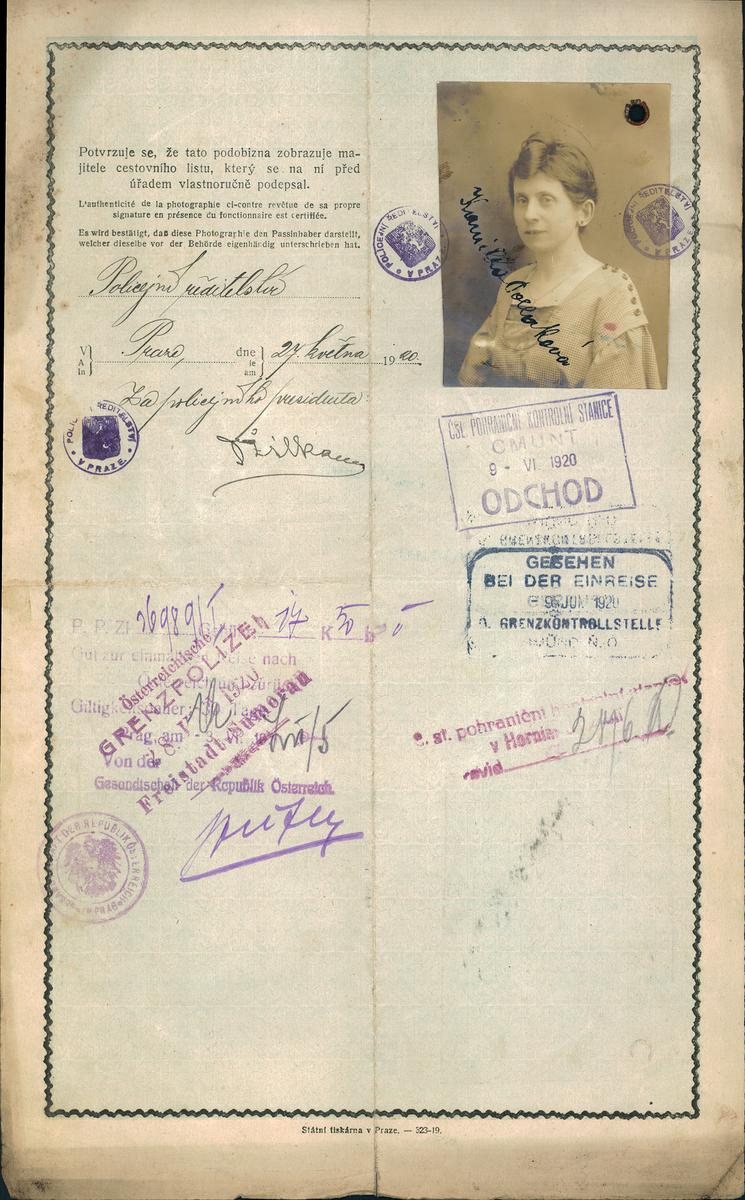 Potvrzuje se, že tato podobizna zobrazuje ma-
jitele cestovního listu, který se na ní před
úřadem vlastnoručně podepsal.
L'authenticité de la photographie ci-contre revêtue de sa propre
signature en présence du fonctionnaire est certifiée.
Es wird bestätigt, daß diese Photographie den Passinhaber darstellt,
welcher dieselbe vor der Behörde eigenhändig unterschrieben hat.
Policejní ředitelství
V
A
In
Praze,
dne
le
am
27. května 1920.
Za policejního presidenta:
POLICEJNÍ ŘEDITELSTVÍ
V PRAZE
POLICEJNÍ ŘEDITELSTVÍ
V PRAZE
ŘEDITELSTVÍ
V PRAZE
Kamilla Pollaková
ČSL. POHRANIČNÍ KONTROLNÍ STANICE
GMUNT
9 - VI 1920
ODCHOD
GESEHEN
BEI DER EINREISE
9. JUN 1920
Ö. GRENZKONTROLLSTELLE
GMÜND N.Ö.
P. P. Zl. 26989/I 17 K 50 h
Gut zur einmaligen Reise nach
Prag, am
Von der
Gesandtschaft der Republik Österreich.
Österreichische
GRENZPOLIZEI
1920
Freistadt-Summerau
DER REPUBLIK ÖSTERREICH
PRAG
č. st. pohraniční
v Horním
2776
Státní tiskárna v Praze. — 323-19.